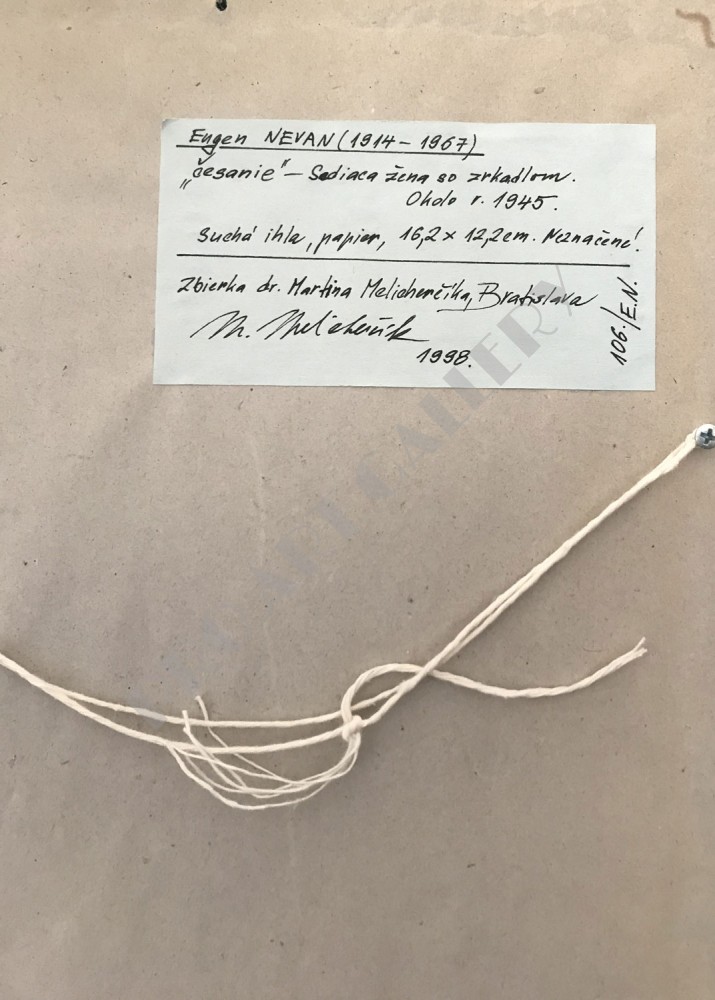 Eugen NEVAN (1914 – 1967)
„Česanie" – Sediaca žena so zrkadlom.
Okolo r. 1945.
Suchá ihla, papier, 16,2 x 12,2 cm. Neznačené.
Zbierka dr. Martina Melicherčíka, Bratislava
M. Melicherčík
1998.
106./E.N.
ART GALLERY